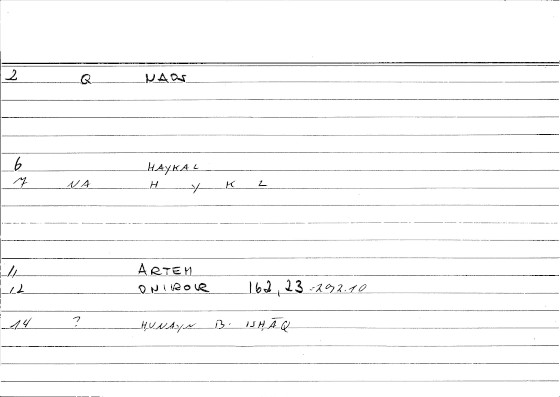 2 Q NAOS
6 HAYKAL
7 NA H Y K L
11 ARTEM
12 ONIROCR 162,23 = 292.10
14 ? HUNAYN B. ISHĀQ